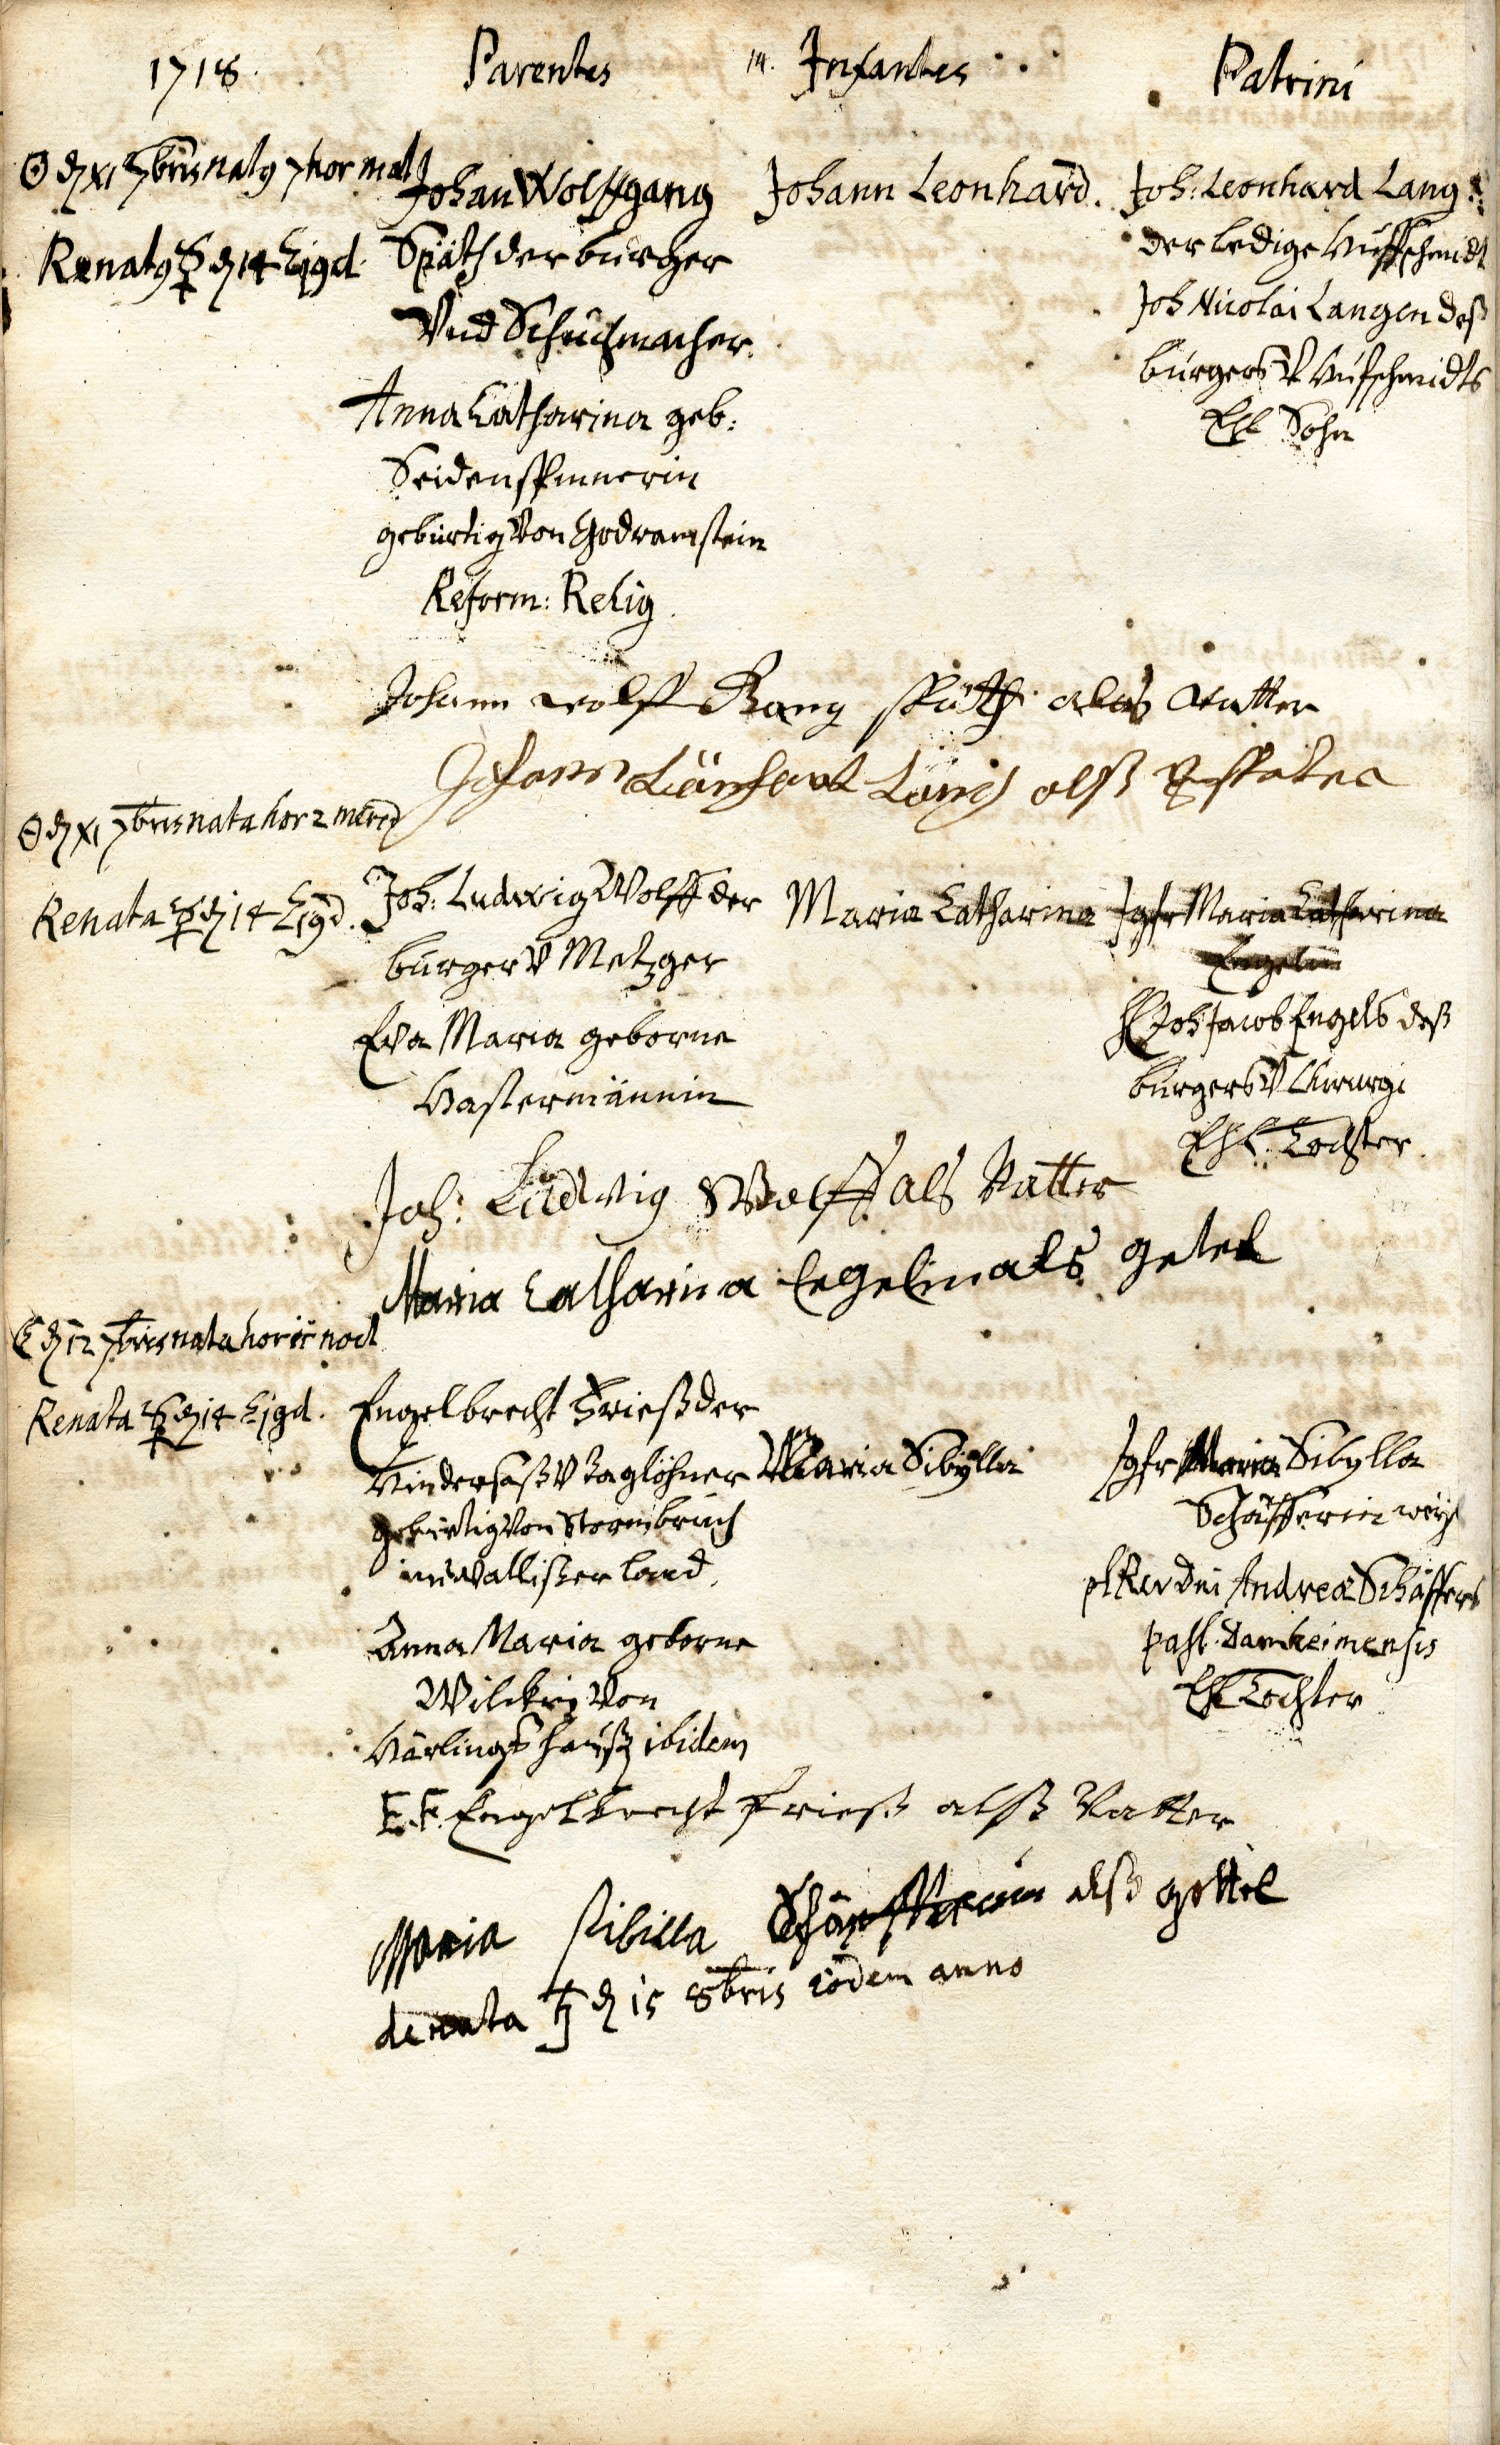 1718. Parentes 14. Infantes Patrini
☉ d. XI 7bris natq 7 hor mat
Renatq ☿ d 14 Ejqd.
Johan Wolffgang
Späth der burger
Und Schuchmacher.
Anna Catharina geb:
Seidenspinnerin
gebürtig Von Godramstein
Reform: Relig.
Johann Leonhard.
Joh: Leonhard Lang
der ledige Huffschmidt
Joh Nicolai Langen deß
burgers V Hufschmidts
Ehl Sohn
Johann wolff Gang späth als Vatter
Johann Länhart Lang alß
☉ d XI 7bris nata hor 2 merid
Renata ☿ d 14 Ejqd.
Joh: Ludwig Wolff der
burger V Metzger
Eva Maria geborne
Hastermännin
Maria Catharina
Jgfr Maria Catharina
Engelin
H Joh Jacob Engels deß
burgers V Chirurgi
Ehl. Tochter.
Joh: Ludwig Wolff als Vatter
Maria Catharina Engelin als getel
☾ d 12 7bris nata hor 11 noct
Renata ☿ d 14 Ejqd.
Engelbrecht Frieß der
Hindersaß V Taglöhner
gebürtig Von Stormbruch
im Wallißer land.
Anna Maria geborne
Wilckin Von
Härlingshaußen ibidem
Maria Sibylla
Jgfr Maria Sibylla
Schäfferin weyl
pl Rev Dni Andreæ Schäffers
past. Damheimensis
Ehl Tochter
E. F. Engelbrecht Frieß alß Vatter
Maria sibilla Schäffferin alß gottel
denata ♄ d 15 8bris eodem anno